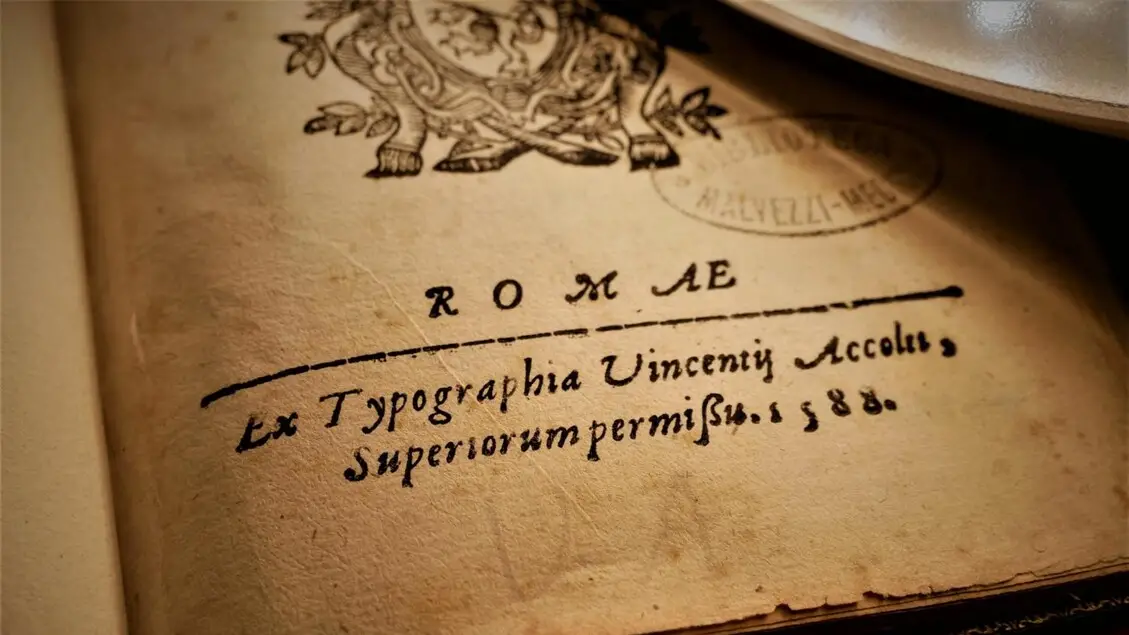 BIBLIOTECA
MALVEZZI-MED
ROMAE
Ex Typographia Vincentij Accolti,
Superiorum permißu. 1588.